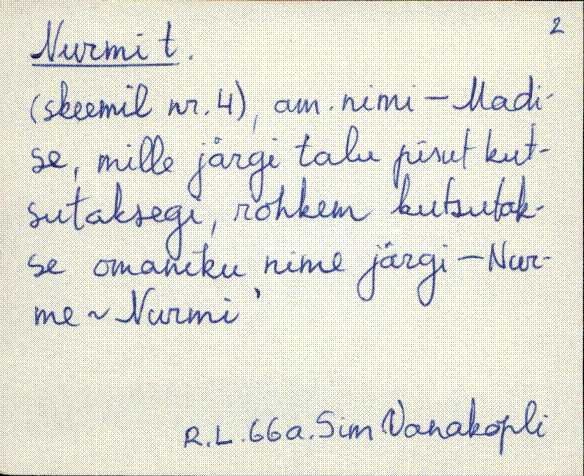 2
Nurmi t.
(skeemil nr. 4), am. nimi – Madi-
se, mille järgi talu pisut kut-
sutaksegi, rohkem kutsutak-
se omaniku nime järgi – Nur-
me ~ Nurmi'
R.L. 66a. Sim Vanakopli